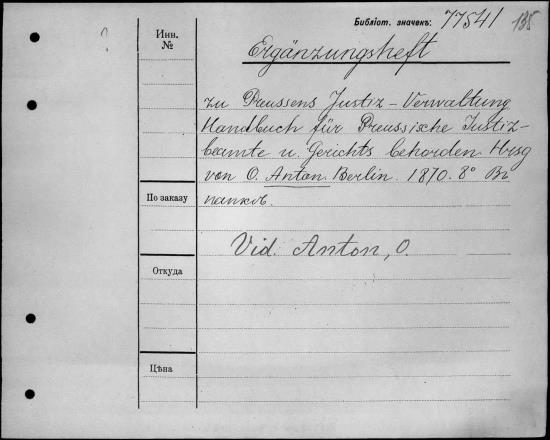 Библіот. значенъ: 77541 135
Инн.
№
Ergänzungsheft
zu Preussens Justiz-Verwaltung
Handbuch für Preussische Justiz-
beamte u. Gerichts behorden. Hrsg
von O. Anton. Berlin. 1870. 8° Въ
папкѣ.
По заказу
Vid. Anton, O.
Откуда
Цѣна